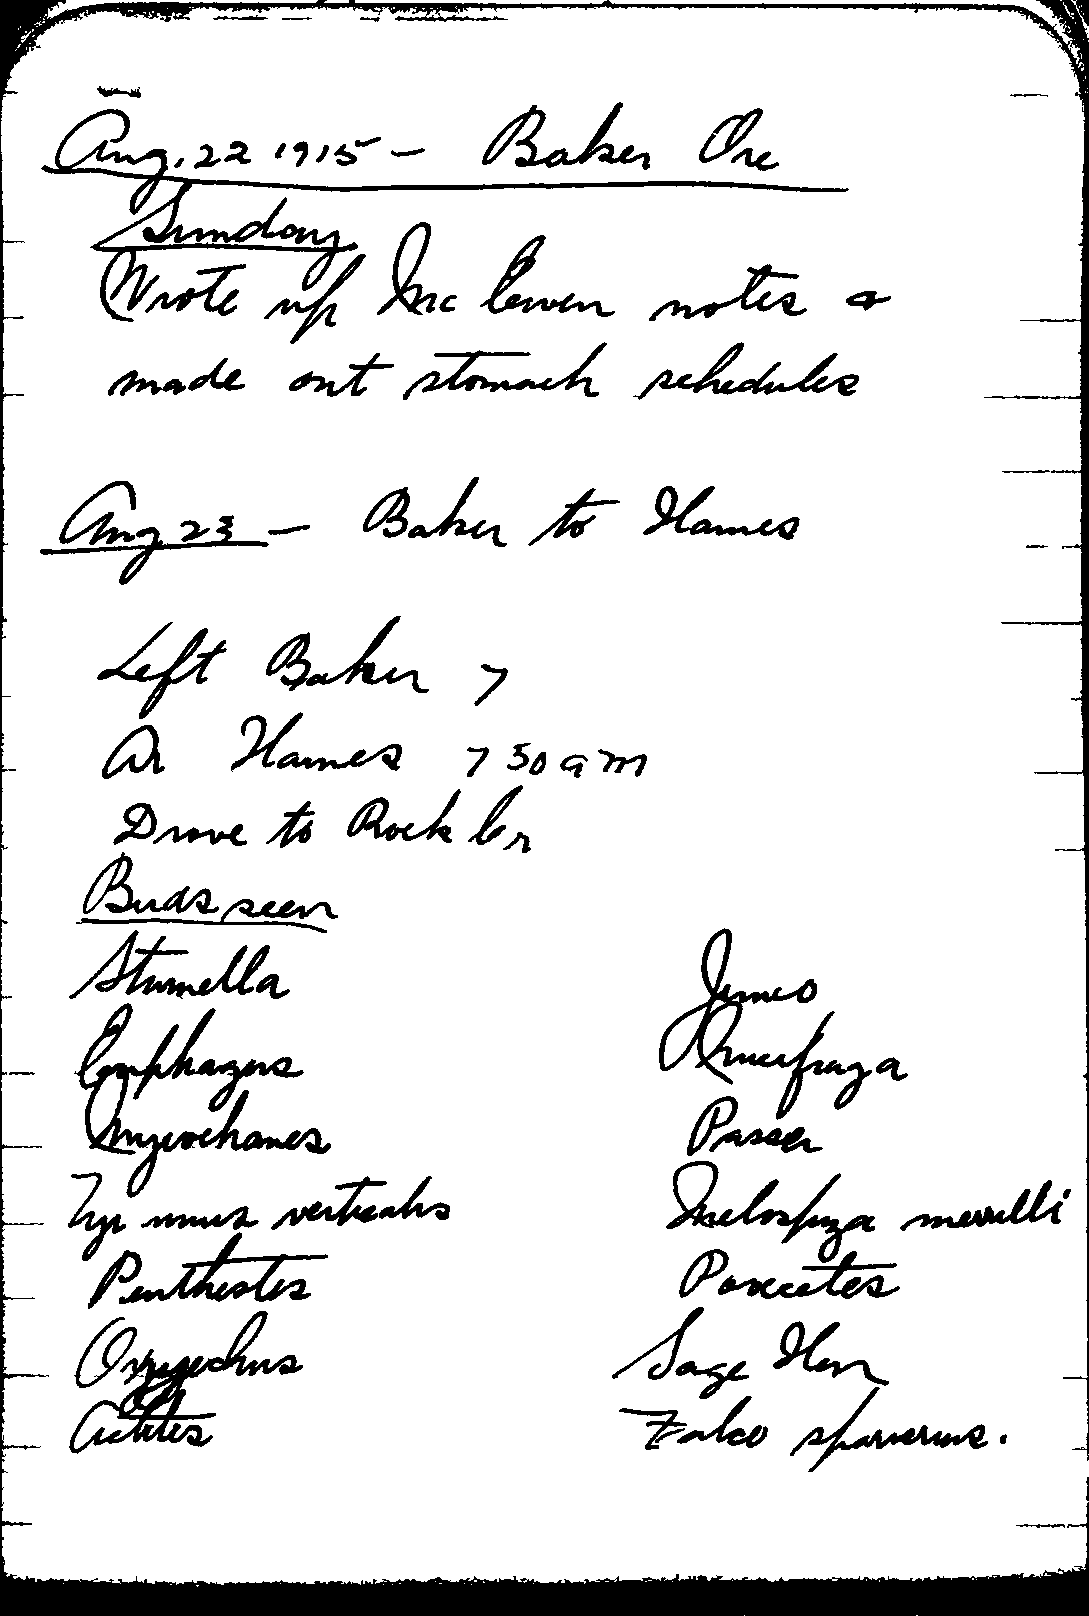 Aug. 22 1915 - Baker Ore
Sunday
Wrote up McEwen notes &
made out stomach schedules
Aug 23 - Baker to Haines
Left Baker 7
Ar Haines 7 50 am
Drove to Rock Cr
Birds seen
Sturnella
Euphagus
Myiochanes
Tyrannus verticalis
Penthestes
Oxyechus
Actitis
Junco
Nucifraga
Passer
Melospiza merrilli
Pooecetes
Sage Hen
Falco sparverius.